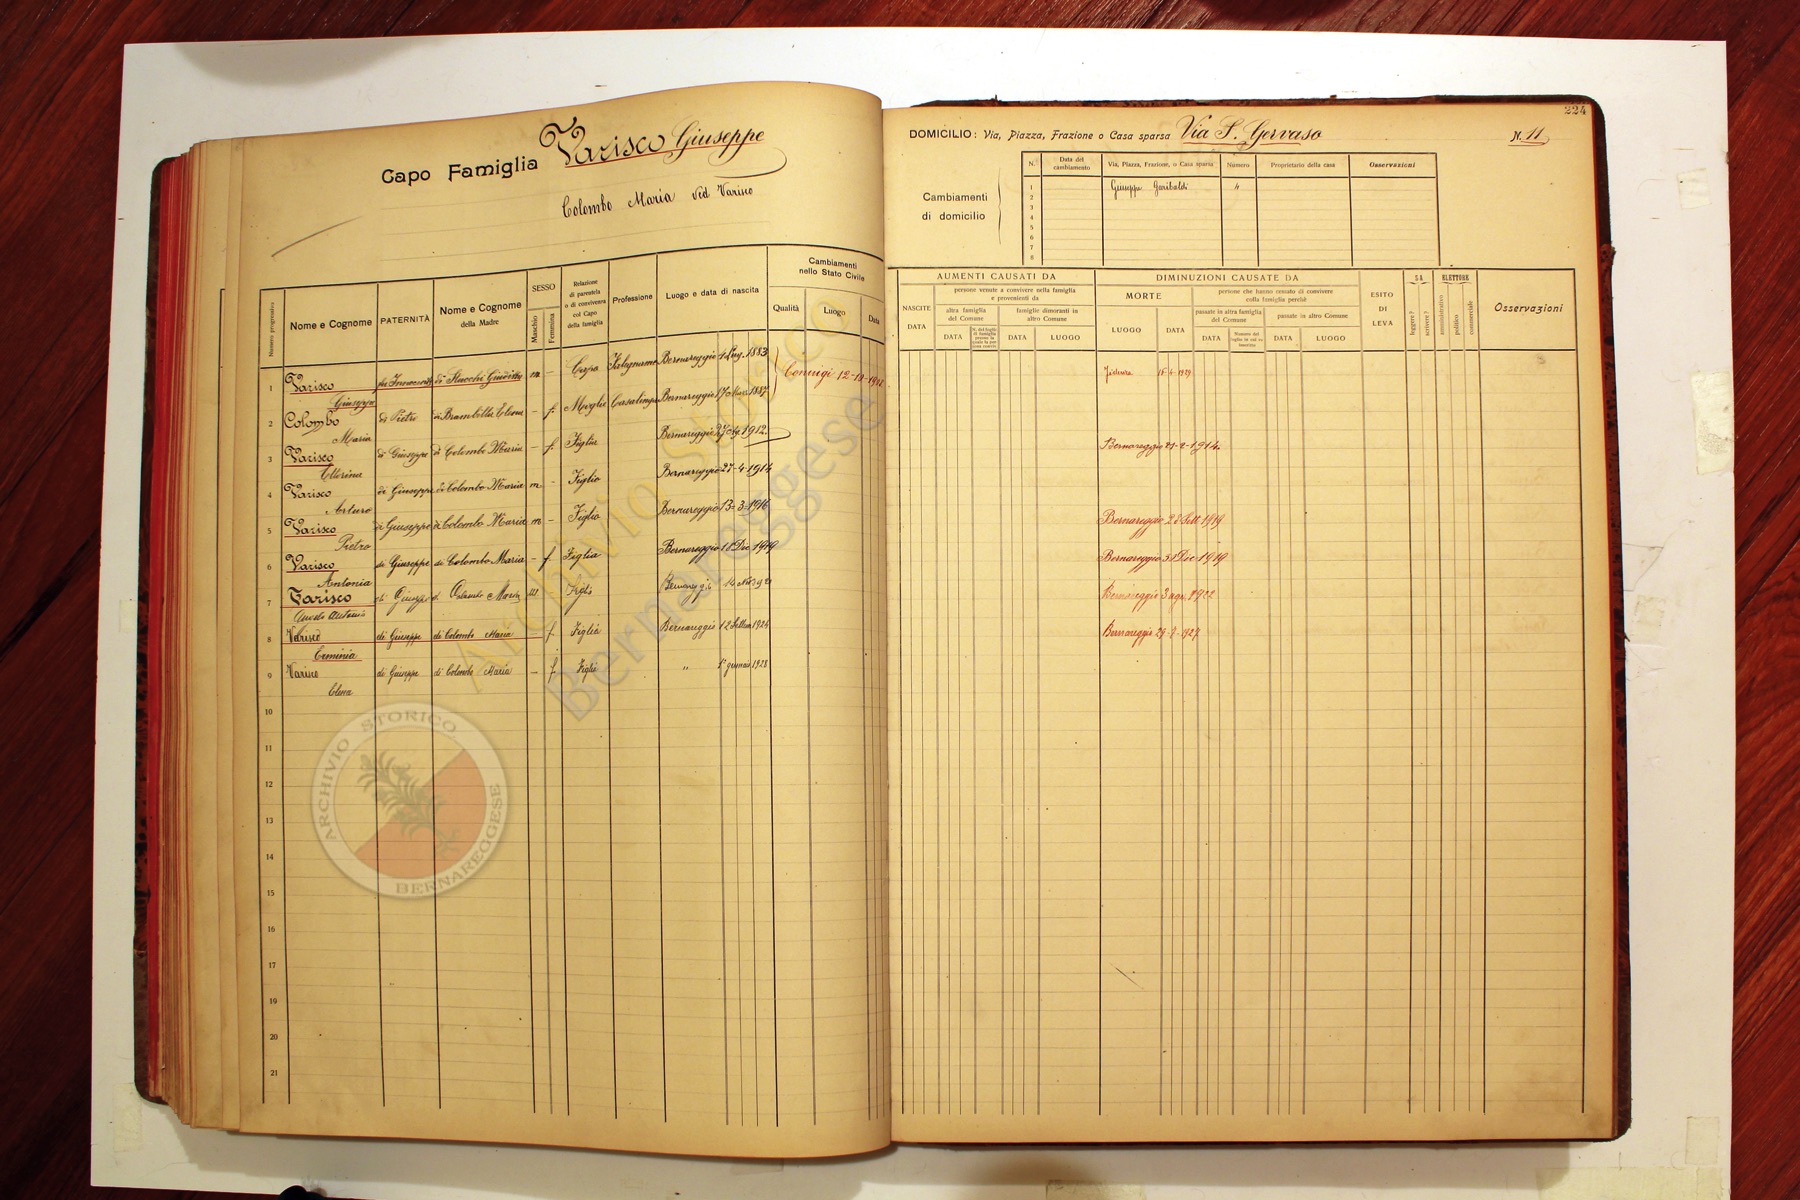 Capo Famiglia Varisco Giuseppe
Colombo Maria ved Varisco
224
DOMICILIO: Via, Piazza, Frazione o Casa sparsa Via S. Gervaso N. 11
Cambiamenti di domicilio
N. Data del cambiamento Via, Piazza, Frazione, o Casa sparsa Numero Proprietario della casa Osservazioni
1 Giuseppe Garibaldi 4
2
3
4
5
6
7
8
Numero progressivo
Nome e Cognome
PATERNITÀ
Nome e Cognome della Madre
SESSO
Maschio
Femmina
Relazione di parentela o di convivenza col Capo della famiglia
Professione
Luogo e data di nascita
Cambiamenti nello Stato Civile
Qualità Luogo Data
AUMENTI CAUSATI DA
NASCITE DATA
persone venute a convivere nella famiglia e provenienti da
altra famiglia del Comune
famiglie dimoranti in altro Comune
DATA
DATA LUOGO
DIMINUZIONI CAUSATE DA
MORTE
LUOGO DATA
persone che hanno cessato di convivere colla famiglia perchè
passate in altra famiglia del Comune
passate in altro Comune
DATA
DATA LUOGO
ESITO DI LEVA
SA
leggere?
scrivere?
ELETTORE
amministrativo
politico
commerciale
Osservazioni
1 Varisco Giuseppe di Stucchi Giuditta m - Capo Falegname Bernareggio 1883 Coniugi 15-4-1929
2 Colombo Maria di Pietro di Brambilla - f. Moglie Casalinga Bernareggio 1887
3 Varisco di Giuseppe di Colombo Maria - f. Figlia Bernareggio 1912 Bernareggio 21-2-1914
4 Varisco Arturo di Giuseppe di Colombo Maria m - Figlio Bernareggio 27-4-1914
5 Varisco Pietro di Giuseppe di Colombo Maria m - Figlio Bernareggio 13-3-1916 Bernareggio 28 Sett 1919
6 Varisco Antonia di Giuseppe di Colombo Maria - f. Figlia Bernareggio 18 Dic 1919 Bernareggio 31 Dic 1919
7 Varisco di Giuseppe di Colombo Maria Figlio Bernareggio 14 Bernareggio 3 ago. 1922
8 Varisco Erminia di Giuseppe di Colombo Maria f. Figlia Bernareggio 12 1924 Bernareggio 1927
9 Varisco Elena di Giuseppe di Colombo Maria - f. Figlia " 1° gennaio 1928
10
11
12
13
14
15
16
17
19
20
21
Archivio Storico
Bernareggese
ARCHIVIO STORICO
BERNAREGGESE